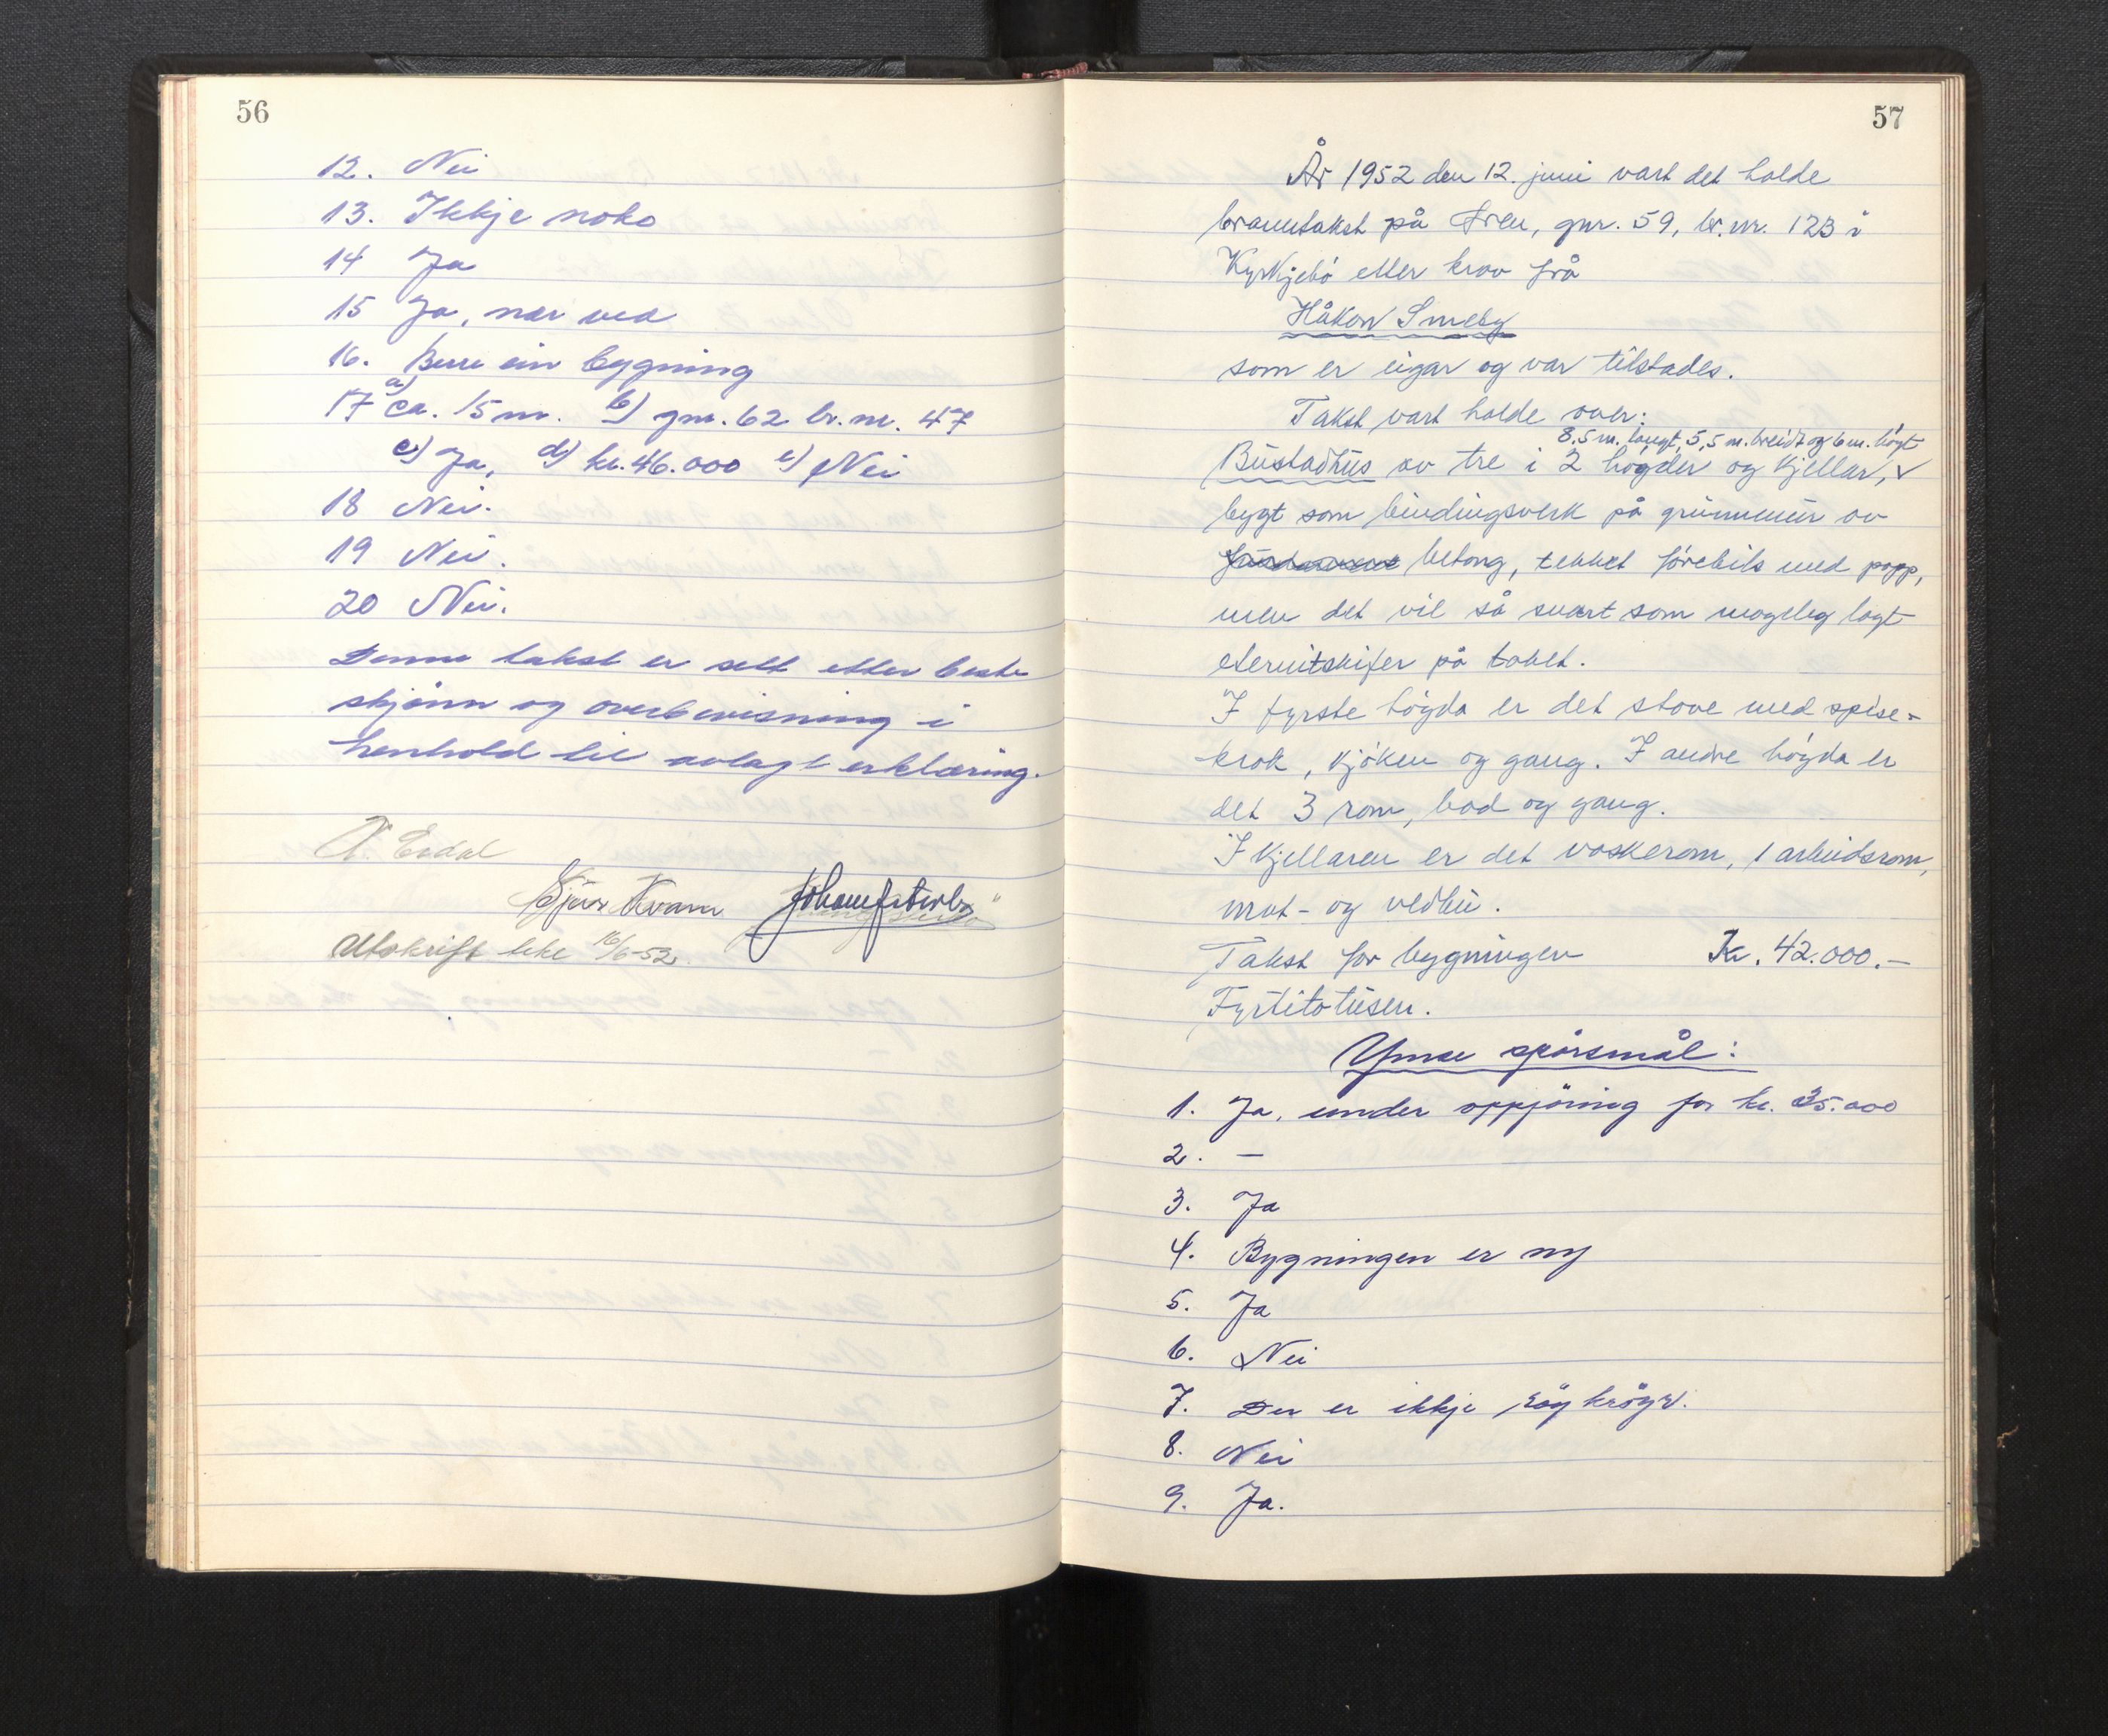 56
12. Nei
13. Ikkje noko
14 Ja
15 Ja, nær ved
16. Berre ein bygning
17 a) ca. 15 m. b) gnr. 62 br. nr. 47
c) Ja, d) kr. 46.000 e) Nei
18 Nei.
19 Nei.
20 Nei.
Denne takst er sett etter beste
skjønn og overbevisning i
henhold til avlagt erklæring.
Kvam
Utskrift teke 16/6-52.
57
År 1952 den 12. juni vart det halde
branntakst på, gnr. 59, br. nr. 123 i
Kyrkjebö etter krav frå
Håkon Smeby
som er eigar og var tilstades.
Takst vart halde over:
8,5 m. langt, 5,5 m. breidt og 6 m. högt
Bustadhus av tre i 2 högder og kjellar, v
bygt som bindingsverk på grunnmur av
betong, tekket förebils med papp,
men det vil så snart som mogeleg lagt
eternitskifer på taket.
I fyrste högda er det stove med spise-
krok, kjöken og gang. I andre högda er
det 3 rom, bad og gang.
I kjellaren er det vaskerom, 1 arbeidsrom,
mat- og vedbu.
Takst for bygningen Kr. 42.000.-
Fyrtitotusen.
Ymse spörsmål:
1. Ja, under oppföring for kr. 35.000
2. -
3. Ja
4. Bygningen er ny
5. Ja
6. Nei
7. Der er ikkje
8. Nei
9. Ja.